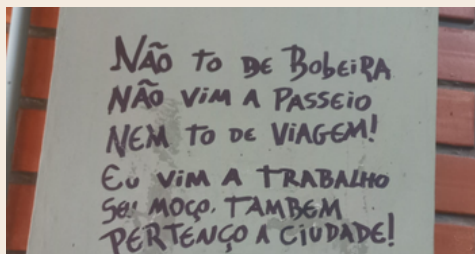 NÃO TO DE BOBEIRA
NÃO VIM A PASSEIO
NEM TO DE VIAGEM!
EU VIM A TRABALHO
SEU MOÇO. TAMBEM
PERTENÇO A CIUDADE!